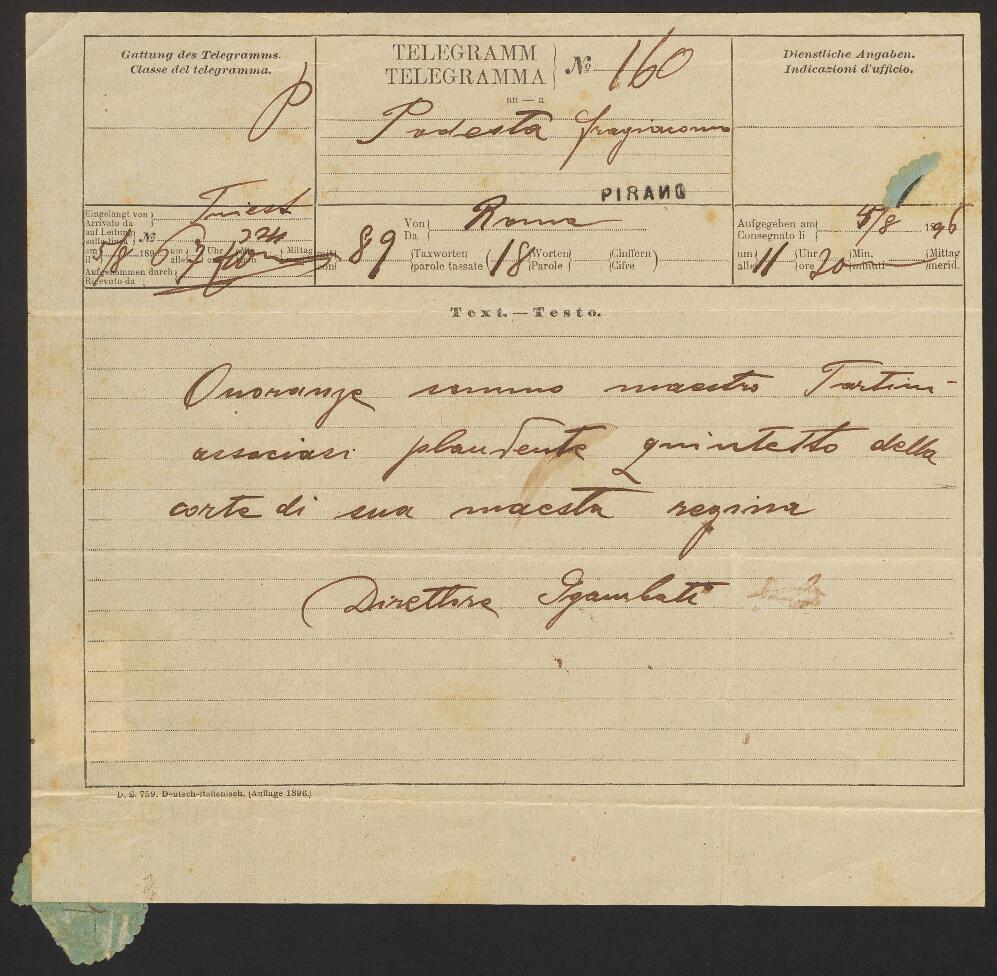 Gattung des Telegramms.
Classe del telegramma.
P
TELEGRAMM
TELEGRAMMA
№ 160
an — a
Podesta fragiacomo
PIRANO
Dienstliche Angaben.
Indicazioni d'ufficio.
Eingelangt von
Arrivato da
Triest
auf Leitung
sulla linea
№
am
il
5/8 1896
um
alle
Uhr
Mittag
Aufgenommen durch
Ricevuto da
Von
Da
Roma
89
Taxworten
parole tassate
18
Worten
Parole
Chiffern
Cifre
Aufgegeben am
Consegnato li
5/8 1896
um
alle
11
Uhr
ore
20
Min.
minuti
Mittag
merid.
Text. — Testo.
Onoranze sommo maestro Tartini
associasi plaudente quintetto della
corte di sua maesta regina
Direttore Sgambati
D. S. 759. Deutsch-italienisch. (Auflage 1896.)